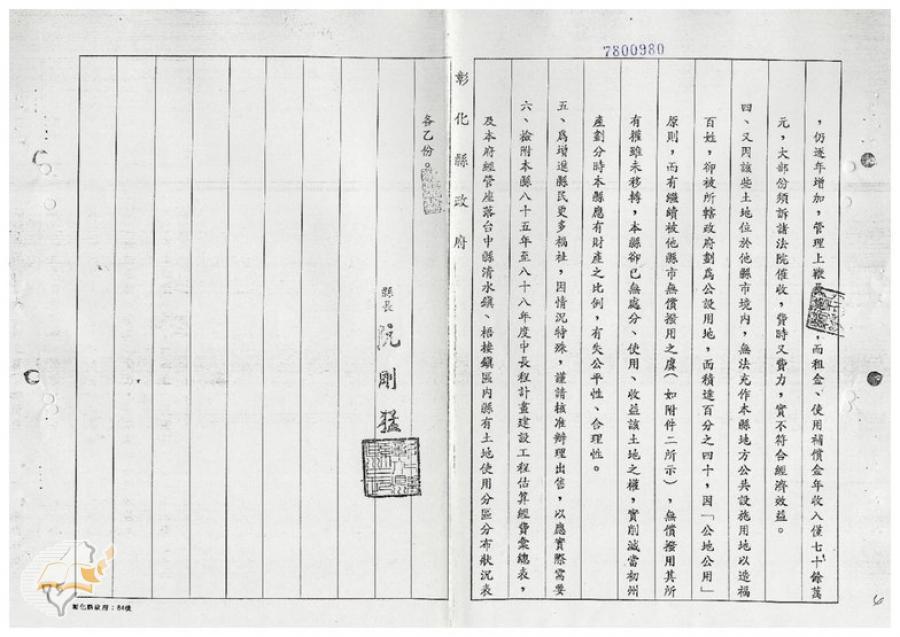 7800980
，仍逐年增加，管理上鞭長，而租金、使用補償金年收入僅七十餘萬
元，大部份須訴諸法院催收，費時又費力，實不符合經濟效益。
四、又因該些土地位於他縣市境內，無法充作本縣地方公共設施用地以造福
百姓，卻被所轄政府劃為公設用地，面積達百分之四十，因「公地公用」
原則，而有繼續被他縣市無償撥用之虞（如附件二所示），無償撥用其所
有權雖未移轉，本縣卻已無處分、使用、收益該土地之權，實削減當初州
產劃分時本縣應有財產之比例，有失公平性、合理性。
五、為增進縣民更多福祉，因情況特殊，謹請核准辦理出售，以應實際需要
六、檢附本縣八十五年至八十八年度中長程計畫建設工程估算經費彙總表，
及本府經管座落台中縣清水鎮、梧棲鎮區內縣有土地使用分區分布狀況表
彰化縣政府
各乙份。
縣長 阮剛猛
彰化縣政府：84後
6